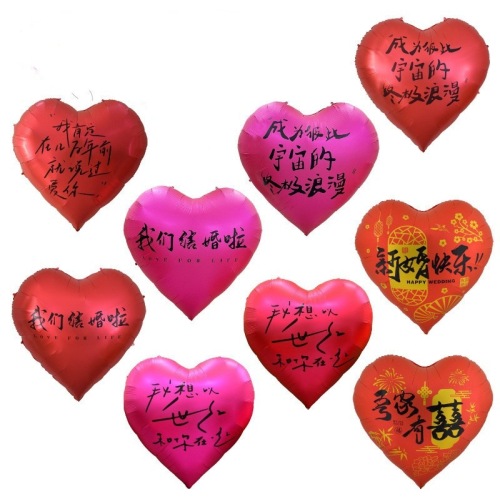 成为彼此
宇宙的
终极浪漫
"我肯定
在几万年前
就说过
爱你"
成为彼此
宇宙的
终极浪漫
我们结婚啦
LOVE FOR LIFE
新婚快乐!!
HAPPY WEDDING
我们结婚啦
LOVE FOR LIFE
我想以
世纪
和你在一起
我想以
世纪
和你在一起
吾家
有囍